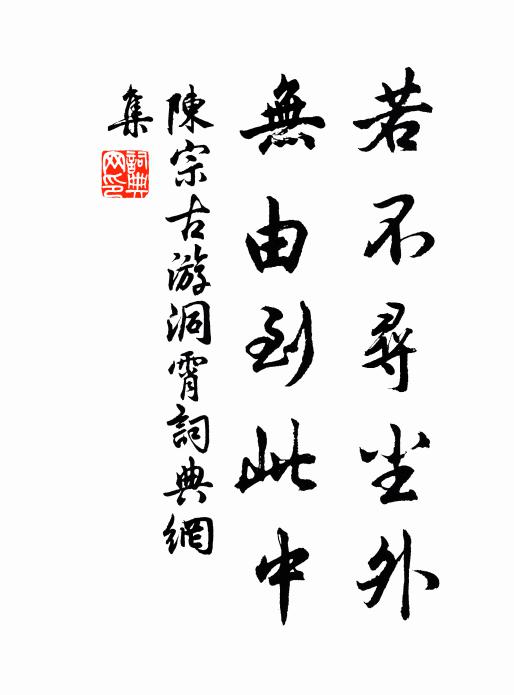 若不尋尘外
無由到此中
陳宗古游洞霄詞典網
集
詞典
网印